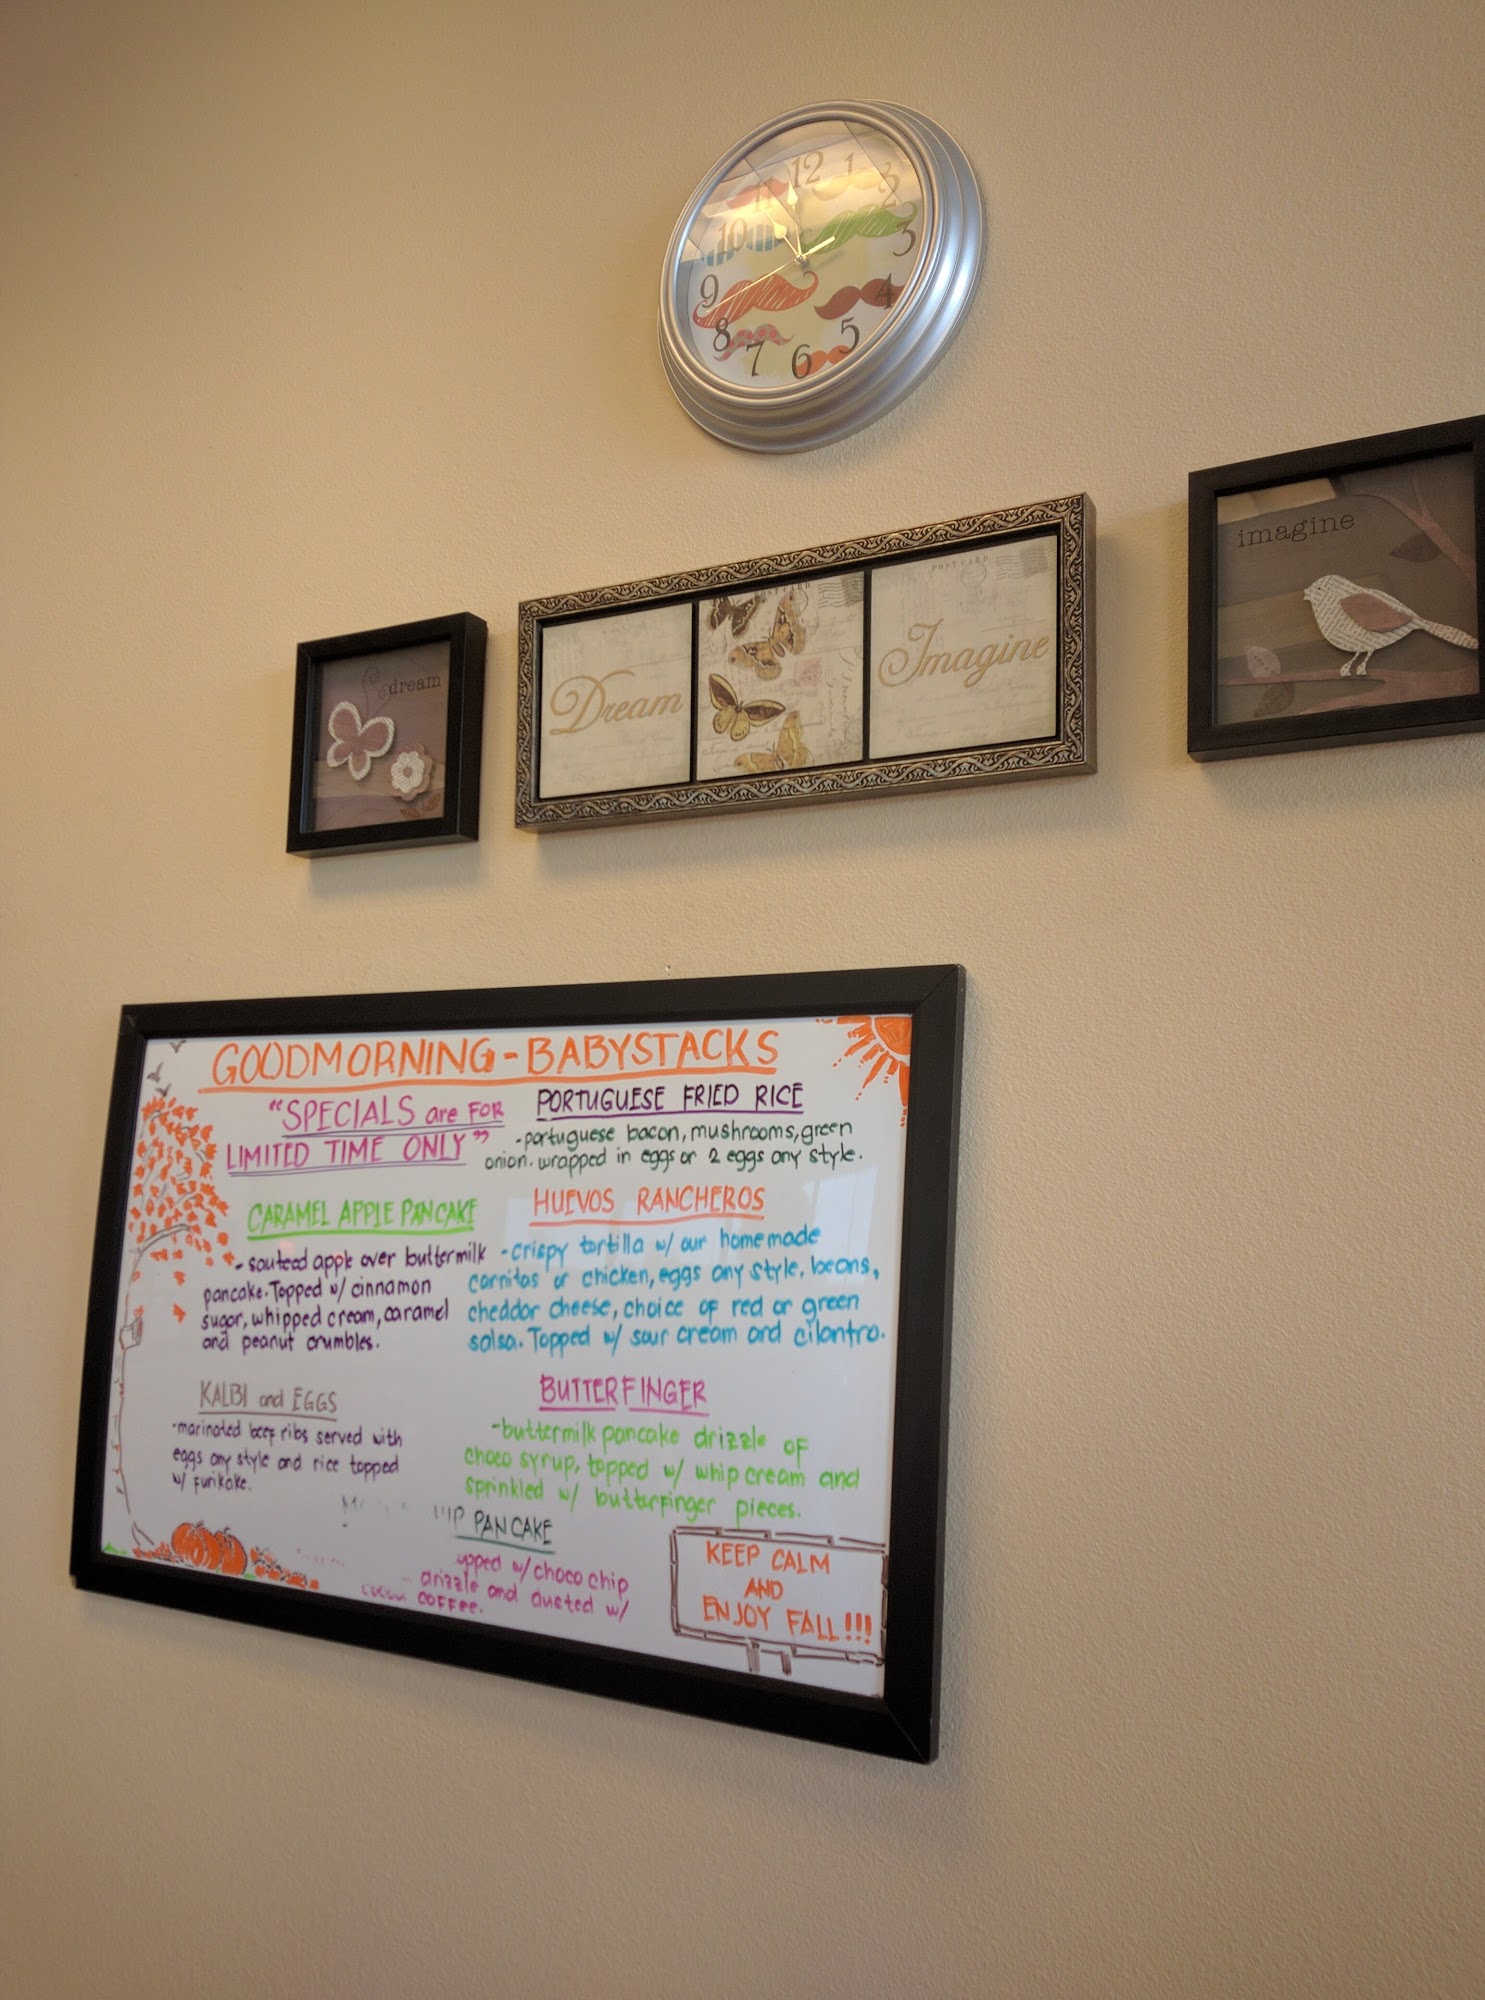 12
1
2
3
4
5
6
7
8
9
10
11
dream
Dream
POSTCARD
Imagine
POSTCARD
imagine
GOODMORNING-BABYSTACKS
"SPECIALS are FOR
LIMITED TIME ONLY"
PORTUGUESE FRIED RICE
-portuguese bacon, mushrooms, green
onion. wrapped in eggs or 2 eggs any style.
CARAMEL APPLE PANCAKE
- sauteed apple over buttermilk
pancake. Topped w/ cinnamon
sugar, whipped cream, caramel
and peanut crumbles.
HUEVOS RANCHEROS
-crispy tortilla w/ our homemade
carnitas or chicken, eggs any style, beans,
cheddar cheese, choice of red or green
salsa. Topped w/ sour cream and cilantro.
KALBI and EGGS
-marinated beef ribs served with
eggs any style and rice topped
w/ furikake.
BUTTERFINGER
-buttermilk pancake drizzle of
choco syrup, topped w/ whip cream and
sprinkled w/ butterfinger pieces.
PANCAKE
w/ choco chip
drizzle and dusted w/
coffee.
KEEP CALM
AND
ENJOY FALL!!!